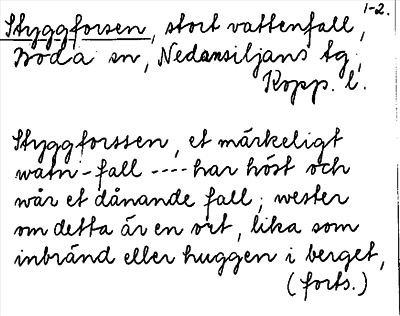 1-2.
Styggforsen, stort vattenfall,
Boda sn, Nedansiljans tg,
Kopp. l.
Styggforssen, et märkeligt
watn-fall ---- har höst och
wår et dånande fall; wester
om detta är en ort, lika som
inbränd eller huggen i berget,
(forts.)